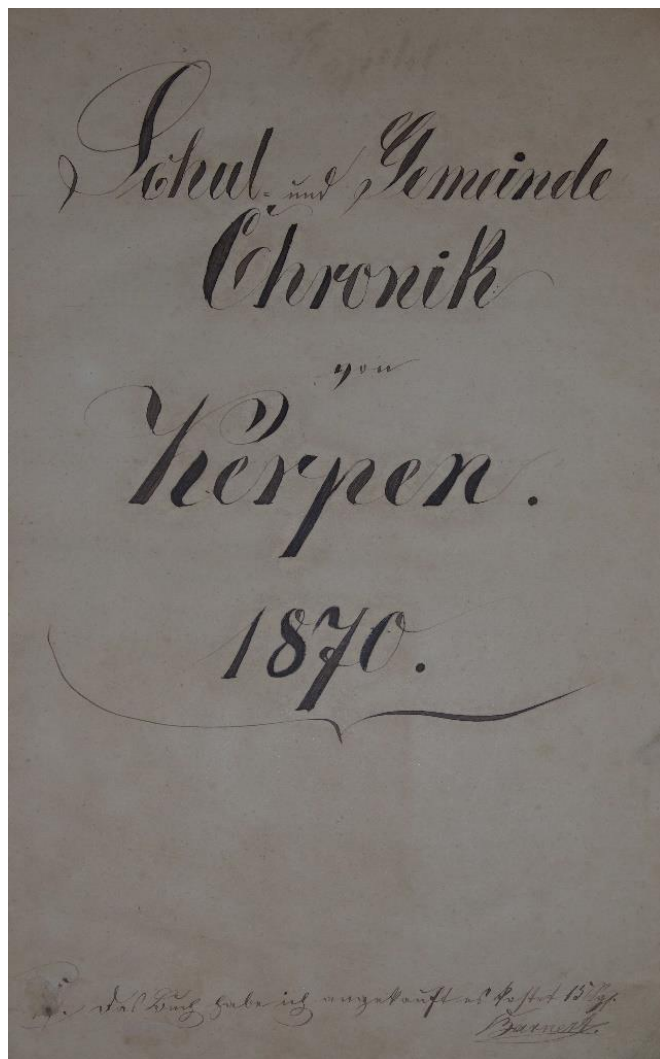 Schul- und Gemeinde
Chronik
von
Kerpen.
1870.
Das Buch habe ich angekauft es kostet 15 Sgr.